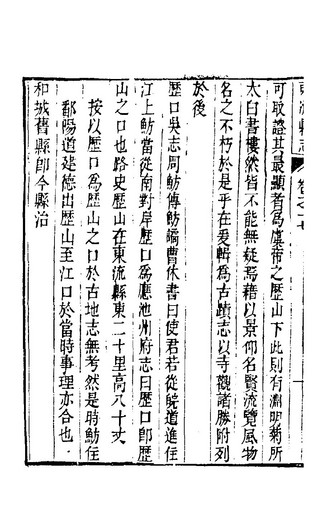 東流縣志 卷之十七
可取證其最顯者為虞帝之歷山下此則有淵明菊所
太白書樓然皆不能無疑焉藉以景仰名賢流覽風物
名之不朽於是乎在爰輯為古蹟志以寺觀諸勝附列
於後
歷口吳志周魴傳魴譎曹休書曰使君若從皖道進住
江上魴當從南對岸歷口為應池州府志曰歷口卽歷
山之口也路史歷山在東流縣東二十里高八十丈
按以歷口為歷山之口於古地志無考然是時魴住
鄱陽道建德出歷山至江口於當時事理亦合也
和城舊縣卽今縣治